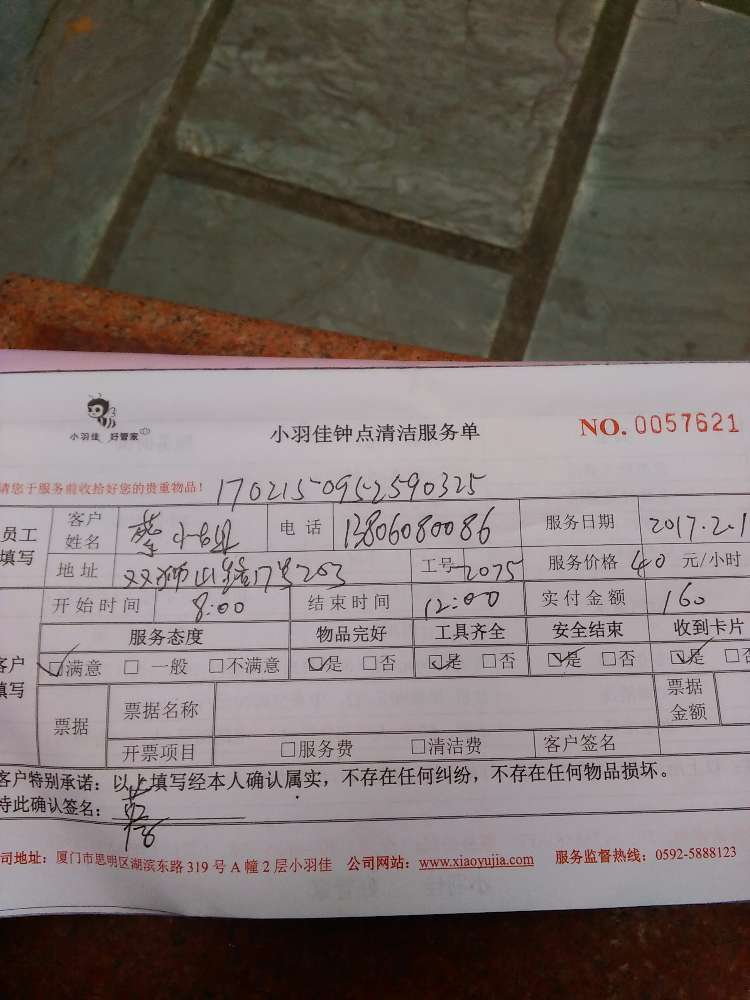 小羽佳 好管家
小羽佳钟点清洁服务单
NO. 0057621
请您于服务前收拾好您的贵重物品! 170215095259 0325
员工填写 客户姓名 蔡小 电话 13806080086 服务日期 2017.2.1
地址 双狮山路17号203 工号 2075 服务价格 40 元/小时
客户填写 开始时间 8:00 结束时间 12:00 实付金额 160
服务态度 物品完好 工具齐全 安全结束 收到卡片
☑满意 □一般 □不满意 ☑是 □否 ☑是 □否 ☑是 □否 ☑是 □否
票据 票据名称 票据金额
开票项目 □服务费 □清洁费 客户签名
客户特别承诺：以上填写经本人确认属实，不存在任何纠纷，不存在任何物品损坏。
特此确认签名：
司地址：厦门市思明区湖滨东路 319 号 A 幢 2 层小羽佳 公司网站：www.xiaoyujia.com 服务监督热线：0592-5888123